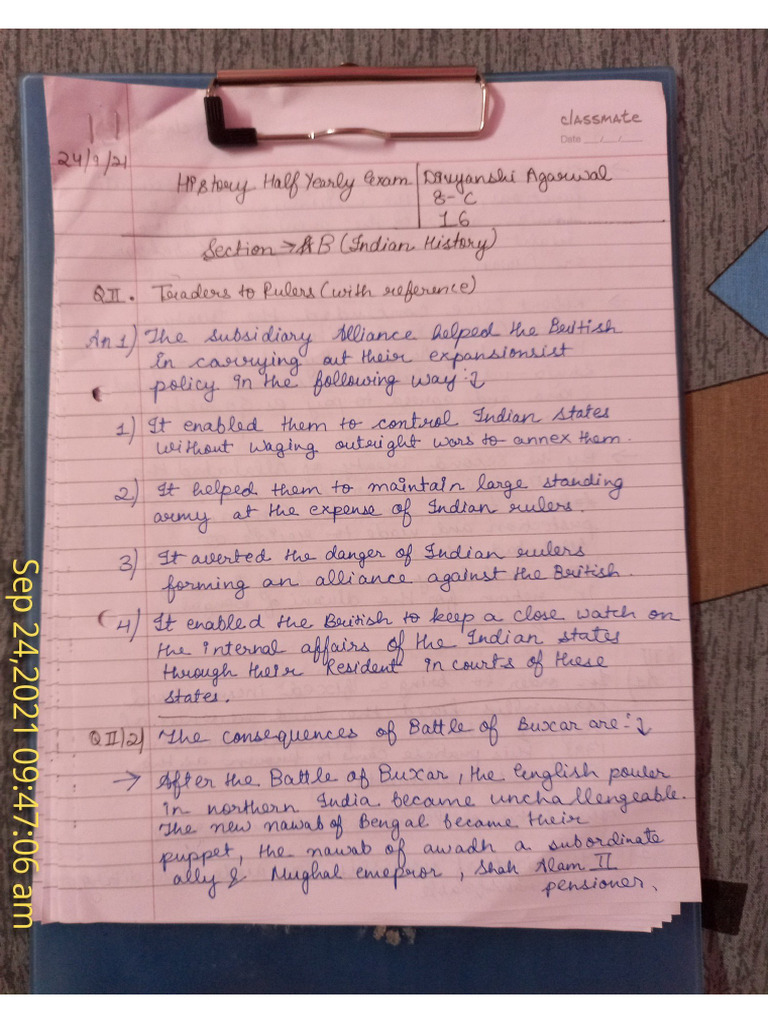 classmate
Date
24/9/21
History Half Yearly Exam
Divyanshi Agarwal
8-C
16
Section → B (Indian History)
Q II. Traders to Rulers (with reference)
An 1) The subsidiary Alliance helped the British
in carrying out their expansionsist
policy in the following way :-
1) It enabled them to control Indian states
without waging outright wars to annex them.
2) It helped them to maintain large standing
army at the expense of Indian rulers.
3) It averted the danger of Indian rulers
forming an alliance against the British.
4) It enabled the British to keep a close watch on
the internal affairs of the Indian states
through their Resident in courts of these
states.
Q II) 2) The consequences of Battle of Buxar are :-
→ After the Battle of Buxar, the English power
in northern India became unchallengeable.
The new nawab of Bengal became their
puppet, the nawab of awadh a subordinate
ally & Mughal emepror, Shah Alam II
pensioner.
Sep 24,2021 09:47:06 am